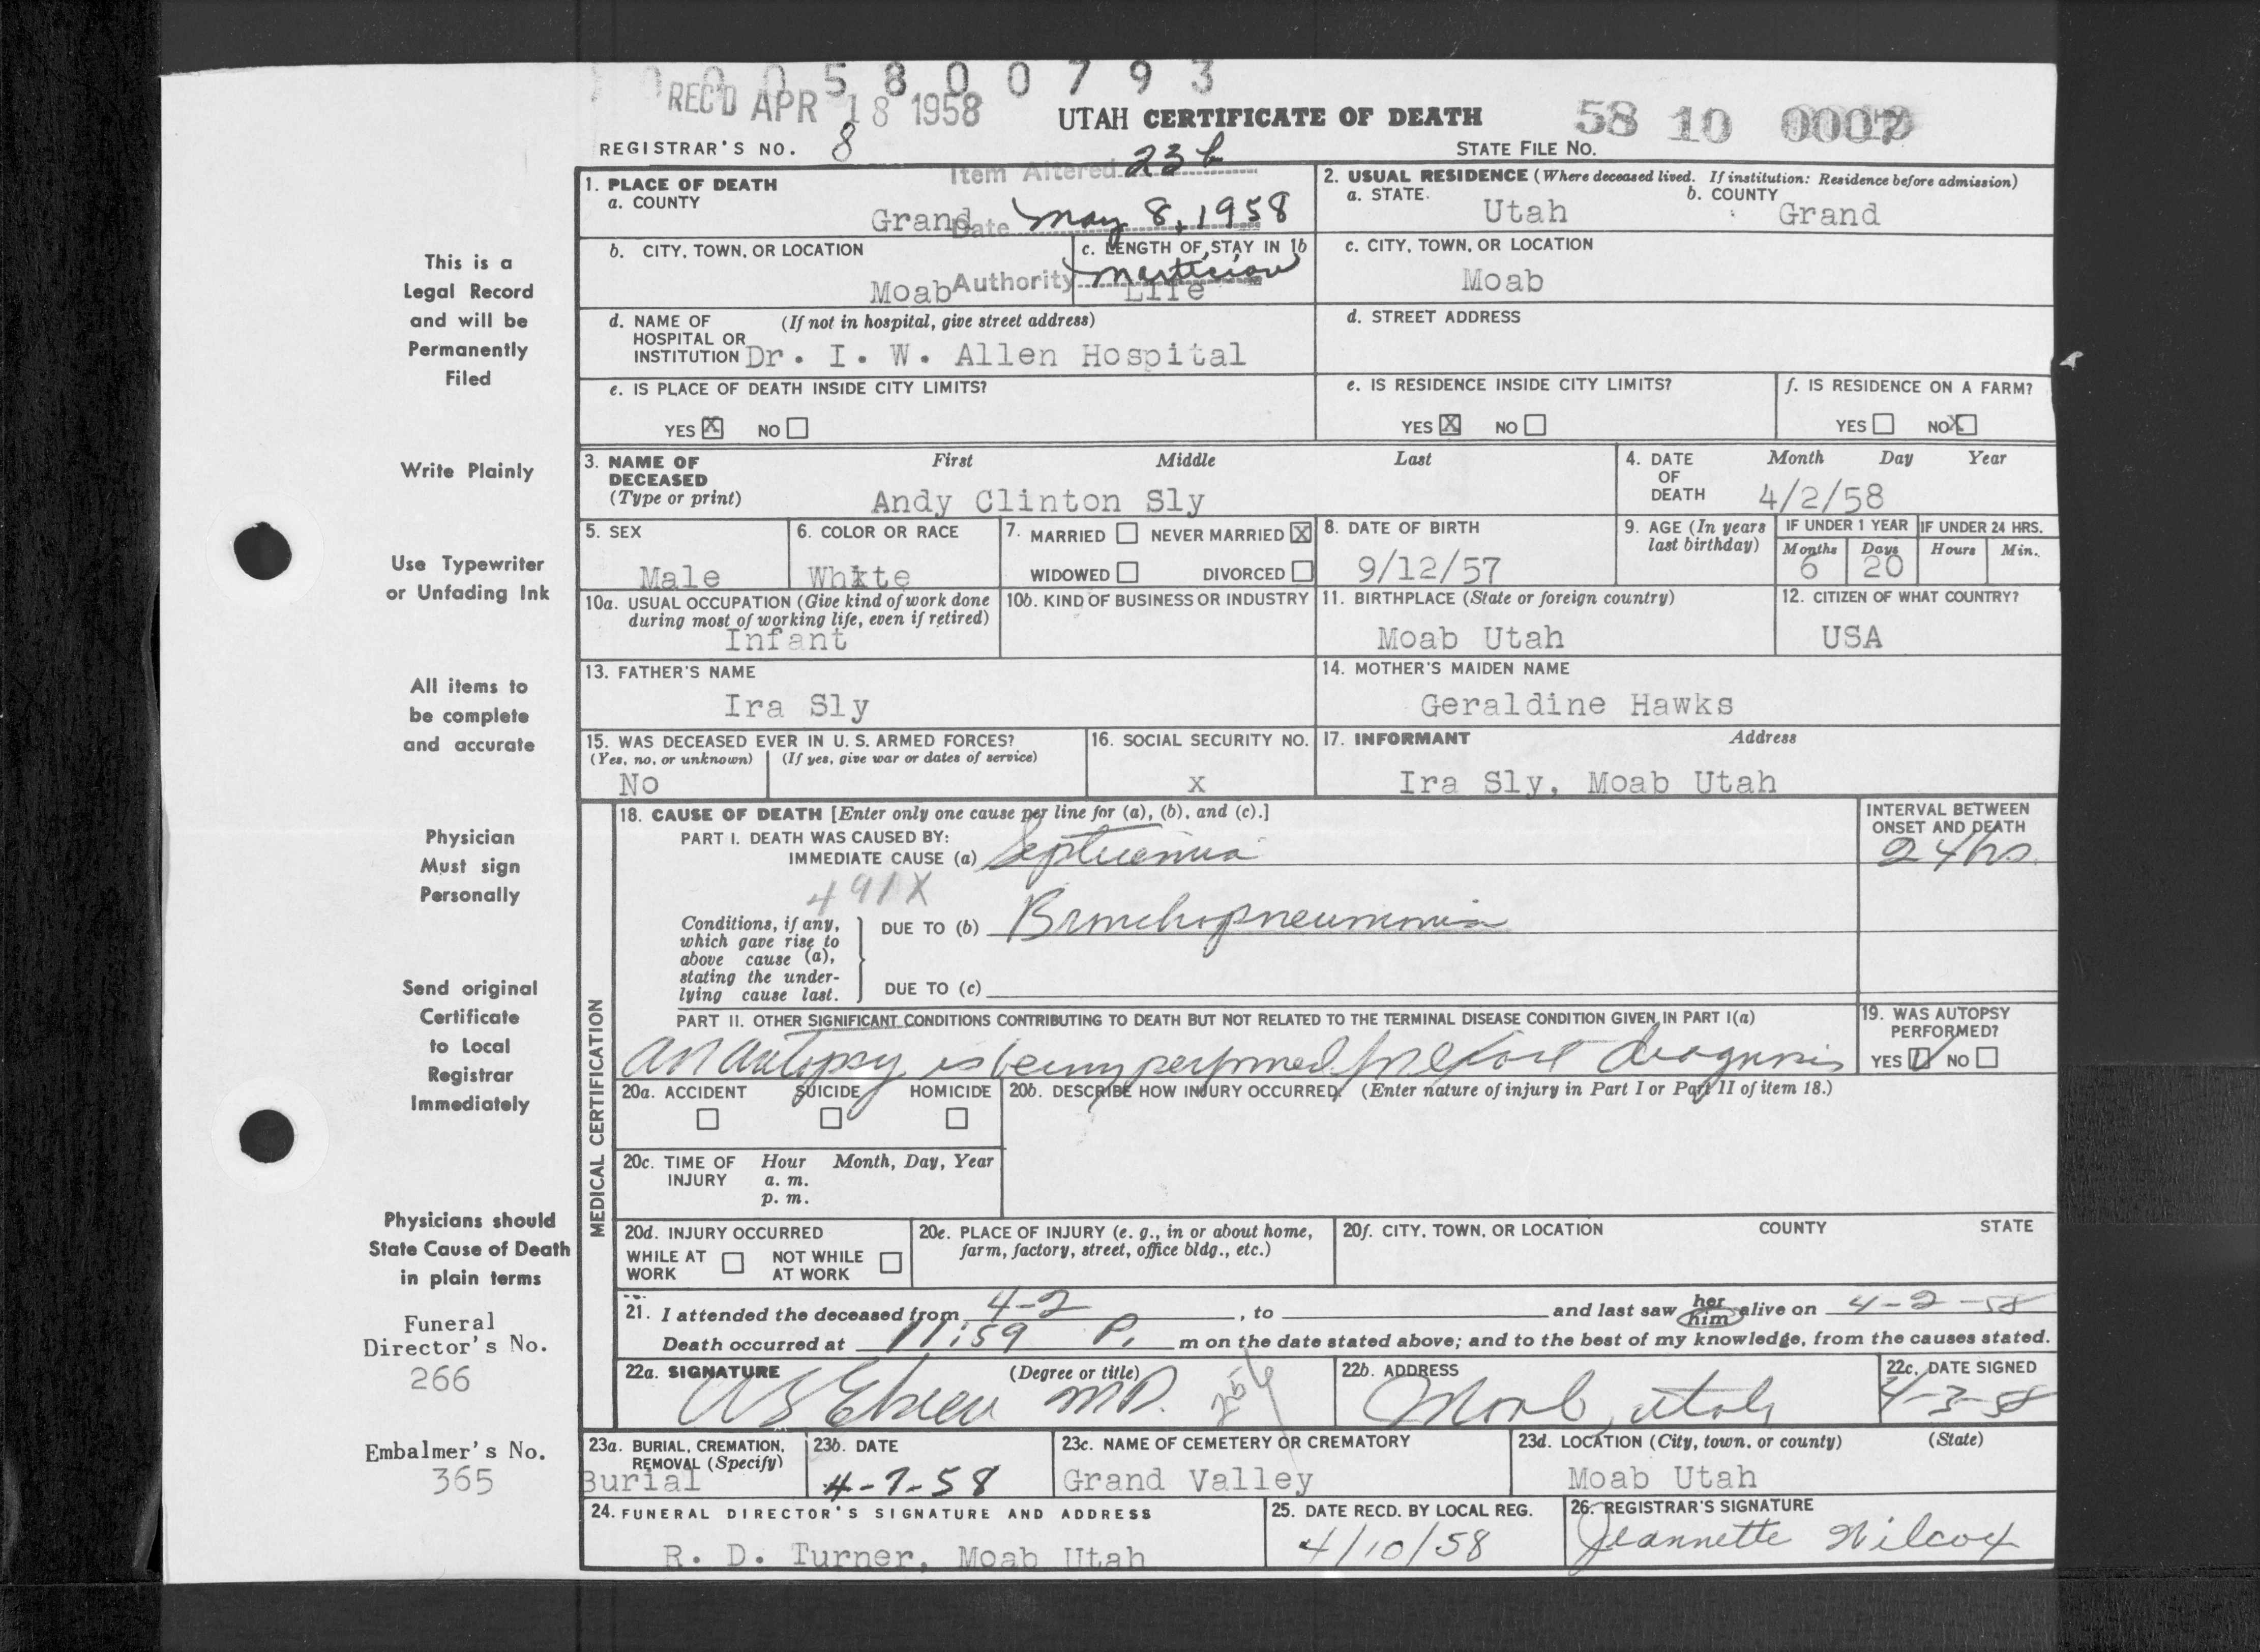 0 0 0 5 8 0 0 7 9 3
REC'D APR 18 1958
UTAH CERTIFICATE OF DEATH
58 10 000
REGISTRAR'S NO. 8
STATE FILE No.
Item Altered 23b
Date May 8, 1958
Authority Mortician
1. PLACE OF DEATH
a. COUNTY
Grand
2. USUAL RESIDENCE (Where deceased lived. If institution: Residence before admission)
a. STATE. Utah b. COUNTY Grand
b. CITY, TOWN, OR LOCATION
Moab
c. LENGTH OF STAY IN 1b
Life
c. CITY, TOWN, OR LOCATION
Moab
d. NAME OF (If not in hospital, give street address)
HOSPITAL OR
INSTITUTION Dr. I. W. Allen Hospital
d. STREET ADDRESS
e. IS PLACE OF DEATH INSIDE CITY LIMITS?
YES X NO
e. IS RESIDENCE INSIDE CITY LIMITS?
YES X NO
f. IS RESIDENCE ON A FARM?
YES NO X
3. NAME OF DECEASED (Type or print)
First Middle Last
Andy Clinton Sly
4. DATE OF DEATH
Month Day Year
4/2/58
5. SEX
Male
6. COLOR OR RACE
White
7. MARRIED NEVER MARRIED X
WIDOWED DIVORCED
8. DATE OF BIRTH
9/12/57
9. AGE (In years last birthday)
IF UNDER 1 YEAR IF UNDER 24 HRS.
Months Days Hours Min.
6 20
10a. USUAL OCCUPATION (Give kind of work done
during most of working life, even if retired)
Infant
10b. KIND OF BUSINESS OR INDUSTRY
11. BIRTHPLACE (State or foreign country)
Moab Utah
12. CITIZEN OF WHAT COUNTRY?
USA
13. FATHER'S NAME
Ira Sly
14. MOTHER'S MAIDEN NAME
Geraldine Hawks
15. WAS DECEASED EVER IN U. S. ARMED FORCES?
(Yes, no, or unknown) (If yes, give war or dates of service)
No
16. SOCIAL SECURITY NO.
x
17. INFORMANT Address
Ira Sly, Moab Utah
MEDICAL CERTIFICATION
18. CAUSE OF DEATH [Enter only one cause per line for (a), (b), and (c).]
PART I. DEATH WAS CAUSED BY:
IMMEDIATE CAUSE (a) Septicemia
INTERVAL BETWEEN
ONSET AND DEATH
24 hrs.
491X
Conditions, if any,
which gave rise to
above cause (a),
stating the under-
lying cause last.
DUE TO (b) Bronchopneumonia
DUE TO (c)
PART II. OTHER SIGNIFICANT CONDITIONS CONTRIBUTING TO DEATH BUT NOT RELATED TO THE TERMINAL DISEASE CONDITION GIVEN IN PART I(a)
An autopsy is being performed for exact diagnosis
19. WAS AUTOPSY
PERFORMED?
YES NO
20a. ACCIDENT SUICIDE HOMICIDE
20b. DESCRIBE HOW INJURY OCCURRED. (Enter nature of injury in Part I or Part II of item 18.)
20c. TIME OF INJURY
Hour Month, Day, Year
a. m.
p. m.
20d. INJURY OCCURRED
WHILE AT WORK NOT WHILE AT WORK
20e. PLACE OF INJURY (e. g., in or about home,
farm, factory, street, office bldg., etc.)
20f. CITY, TOWN, OR LOCATION COUNTY STATE
21. I attended the deceased from 4-2, to and last saw her him alive on 4-2-58
Death occurred at 11:59 P. m on the date stated above; and to the best of my knowledge, from the causes stated.
22a. SIGNATURE (Degree or title)
MD.
22b. ADDRESS
Moab, Utah
22c. DATE SIGNED
4-3-58
23a. BURIAL, CREMATION,
REMOVAL (Specify)
Burial
23b. DATE
4-7-58
23c. NAME OF CEMETERY OR CREMATORY
Grand Valley
23d. LOCATION (City, town, or county) (State)
Moab Utah
24. FUNERAL DIRECTOR'S SIGNATURE AND ADDRESS
R. D. Turner, Moab Utah
25. DATE RECD. BY LOCAL REG.
4/10/58
26. REGISTRAR'S SIGNATURE
Jeannette Wilcox
This is a
Legal Record
and will be
Permanently
Filed
Write Plainly
Use Typewriter
or Unfading Ink
All items to
be complete
and accurate
Physician
Must sign
Personally
Send original
Certificate
to Local
Registrar
Immediately
Physicians should
State Cause of Death
in plain terms
Funeral
Director's No.
266
Embalmer's No.
365